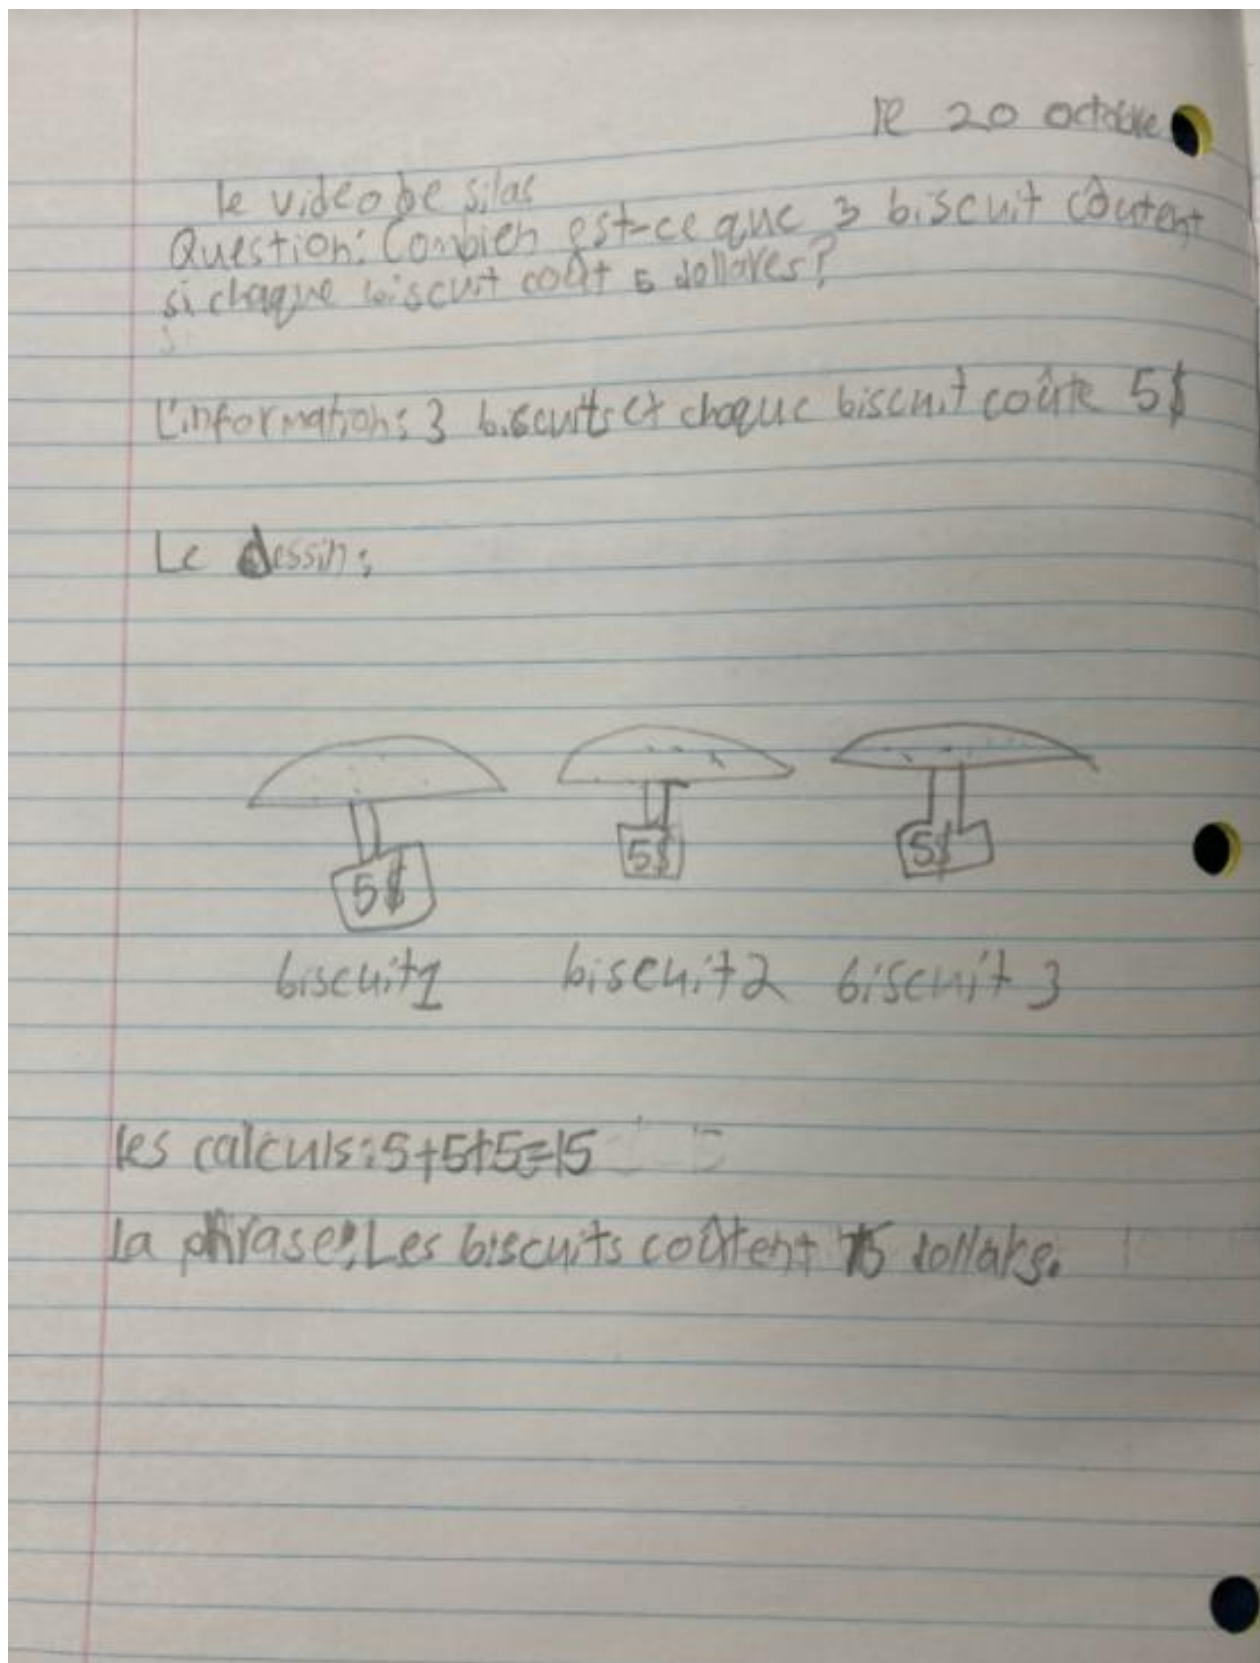 le 20 octobre
le video de silas
Question: Combien est-ce que 3 biscuit coûtent
si chaque biscuit coût 5 dollares?
L'information: 3 biscuits et chaque biscuit coûte 5$
Le dessin:
5$ 5$ 5$
biscuit 1 biscuit 2 biscuit 3
les calculs: 5+5+5=15
la phrase: Les biscuits coûtent 15 dollars.